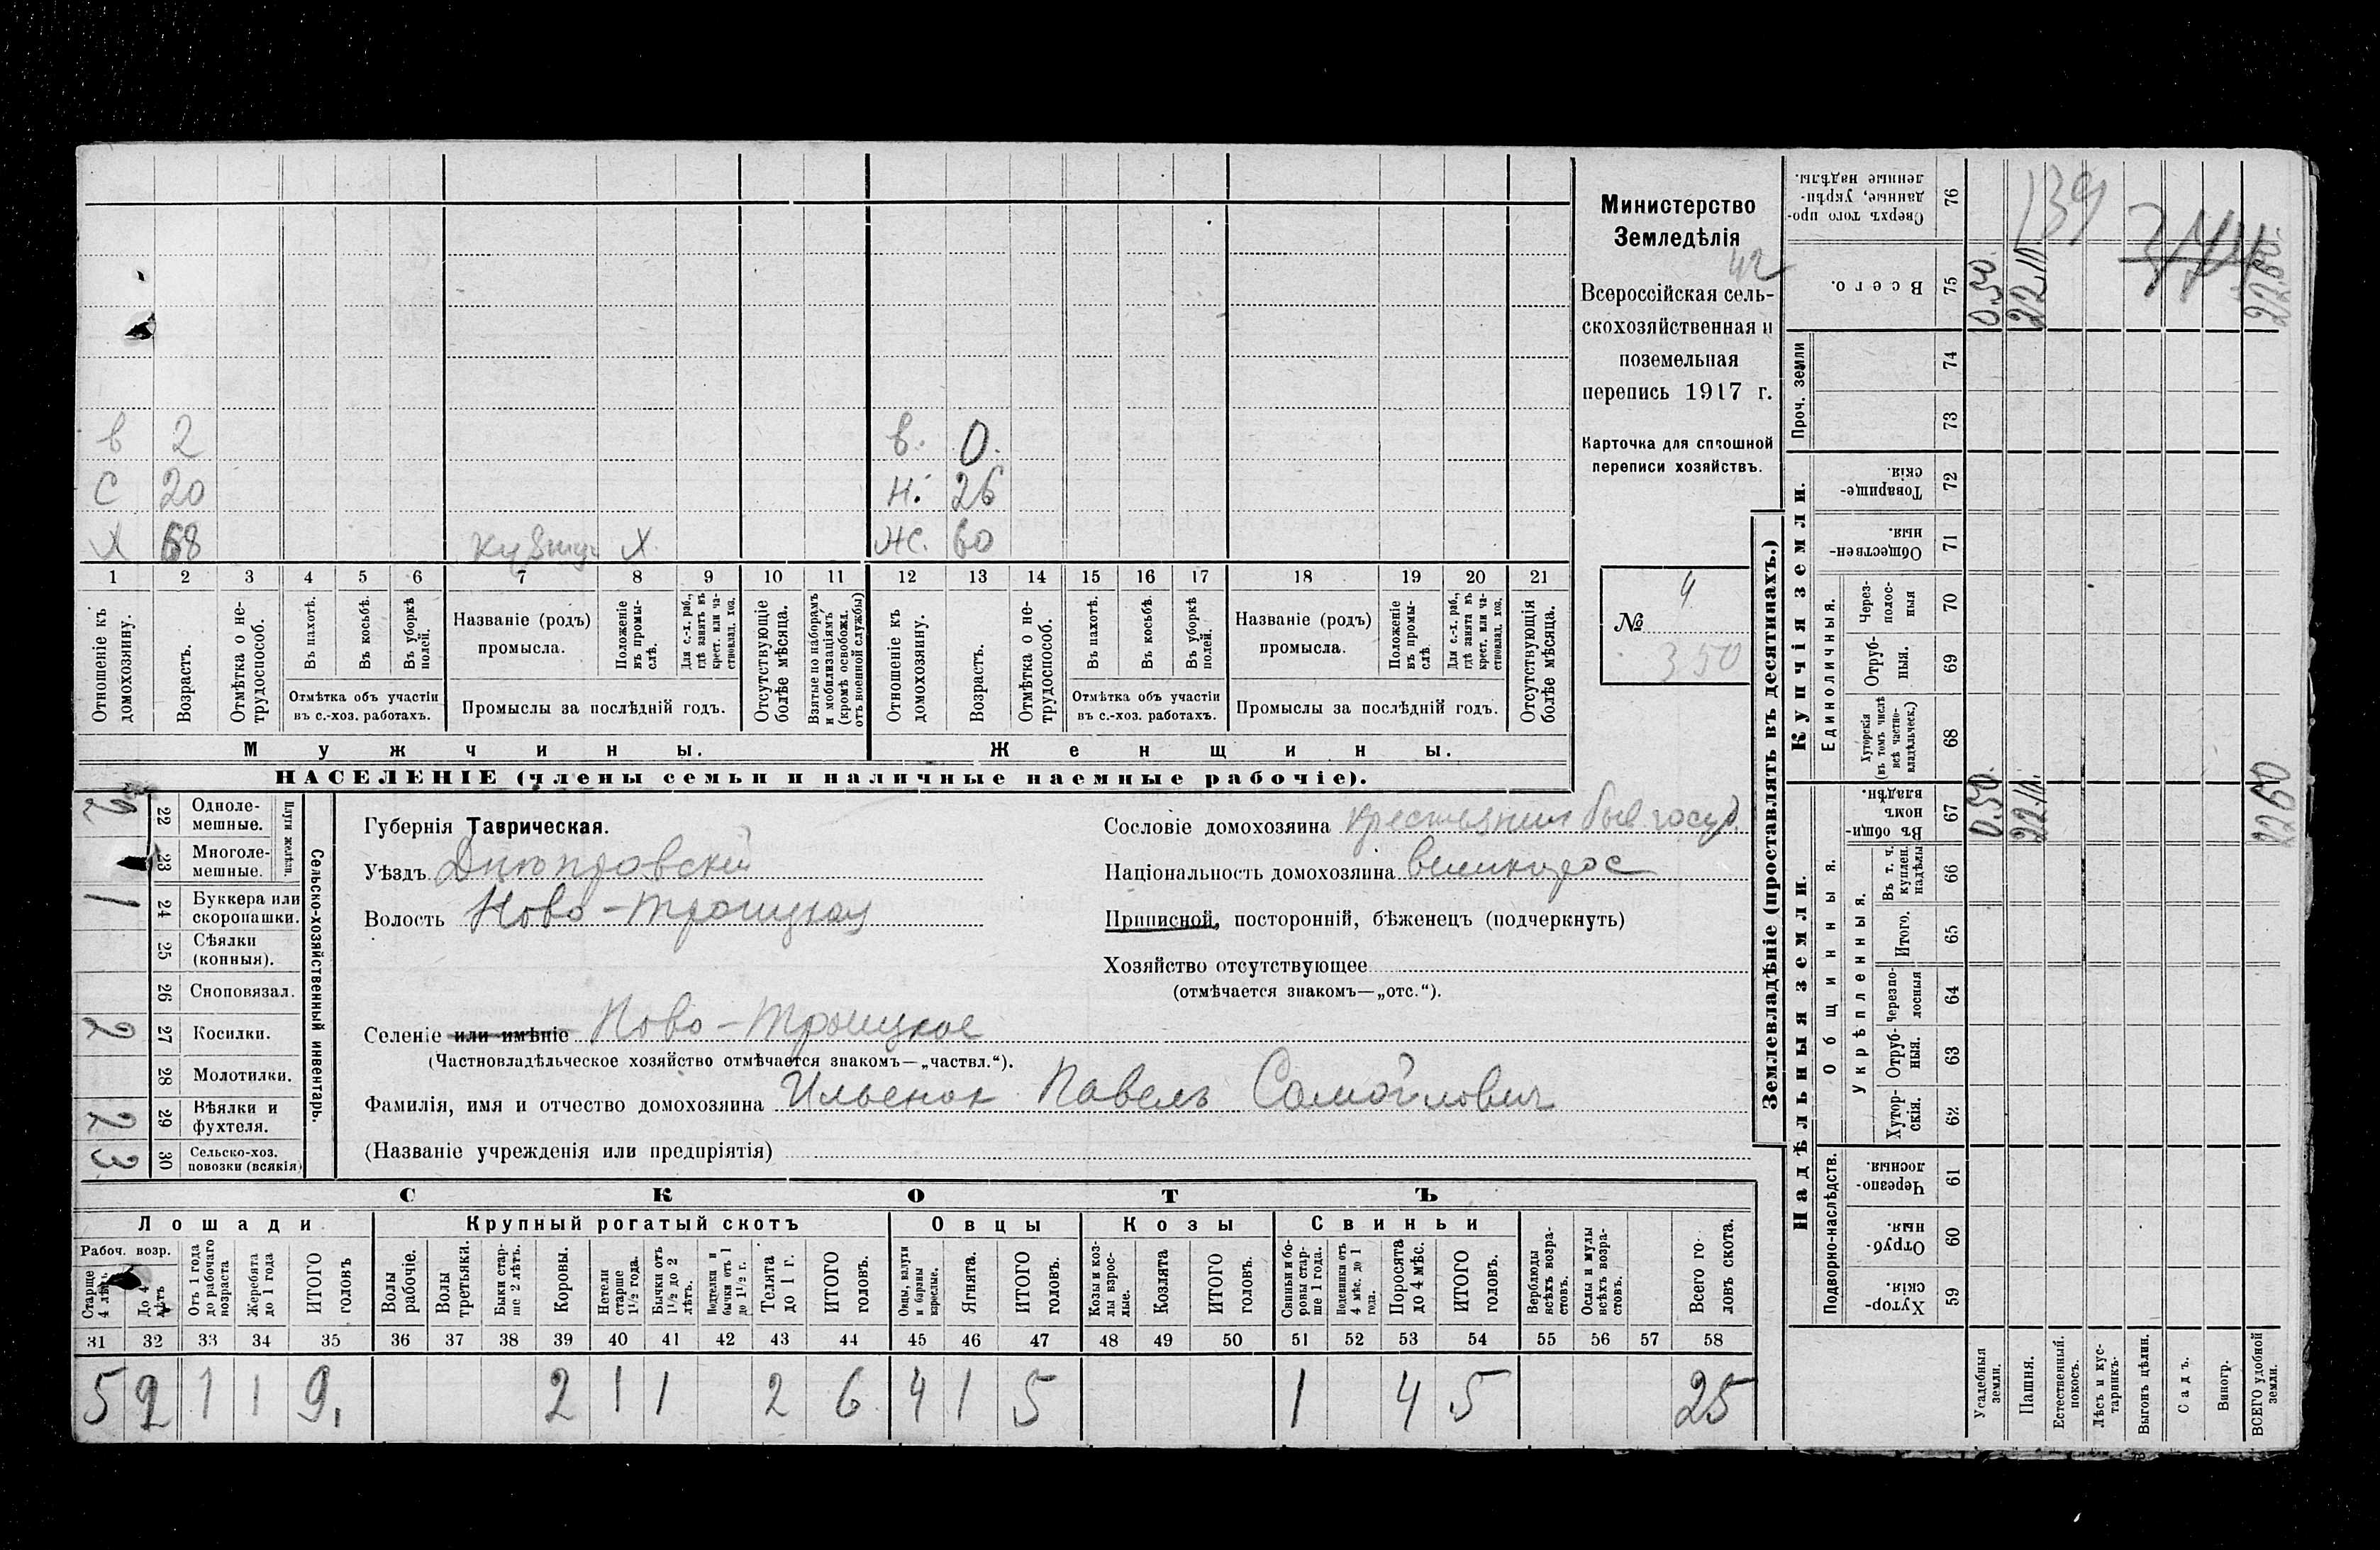 Министерство
Земледѣлія
42
Всероссійская сель-
скохозяйственная и
поземельная
перепись 1917 г.
Карточка для сплошной
переписи хозяйствъ.
№ 4
350
в 2 в. 0.
с 20 н. 26
х 68 х жс. 60
1 2 3 4 5 6 7 8 9 10 11 12 13 14 15 16 17 18 19 20 21
Отношеніе къ домохозяину.
Возрастъ.
Отмѣтка о не-трудоспособ.
Въ пахотѣ.
Въ косьбѣ.
Въ уборкѣ полей.
Отмѣтка объ участіи
въ с.-хоз. работахъ.
Названіе (родъ)
промысла.
Положеніе въ промы-слѣ.
Для с.-х. раб., гдѣ занятъ въ крест. или ча-стновлад. хоз.
Промыслы за послѣдній годъ.
Отсутствующіе болѣе мѣсяца.
Взятые по наборамъ и мобилизаціямъ (кромѣ освобожд. отъ военной службы)
Отношеніе къ домохозяину.
Возрастъ.
Отмѣтка о не-трудоспособ.
Въ пахотѣ.
Въ косьбѣ.
Въ уборкѣ полей.
Отмѣтка объ участіи
въ с.-хоз. работахъ.
Названіе (родъ)
промысла.
Положеніе въ промы-слѣ.
Для с.-х. раб., гдѣ занята въ крест. или ча-стновлад. хоз.
Промыслы за послѣдній годъ.
Отсутствующія болѣе мѣсяца.
Мужчины. Женщины.
НАСЕЛЕНІЕ (члены семьи и наличные наемные рабочіе).
Сельско-хозяйственный инвентарь.
Плуги желѣзн.
2 22 Одноле-мешные.
23 Многоле-мешные.
1 24 Буккера или скоропашки.
25 Сѣялки (конныя).
26 Сноповязал.
2 27 Косилки.
28 Молотилки.
2 29 Вѣялки и фухтеля.
3 30 Сельско-хоз. повозки (всякія)
Губернія Таврическая.
Уѣздъ Днѣпровскій
Волость Ново-Троицкая
Селеніе или имѣніе Ново-Троицкое
(Частновладѣльческое хозяйство отмѣчается знакомъ—„частвл.“).
Фамилія, имя и отчество домохозяина Ильенок Павелъ Самойлович
(Названіе учрежденія или предпріятія)
Сословіе домохозяина крестьянин быв. госуд.
Національность домохозяина великорос
Приписной, посторонній, бѣженецъ (подчеркнуть)
Хозяйство отсутствующее
(отмѣчается знакомъ—„отс.“).
СКОТЪ
Лошади Крупный рогатый скотъ Овцы Козы Свиньи
Рабоч. возр.
Старше 4 лѣтъ
До 4 лѣтъ
Отъ 1 года до рабочаго возраста
Жеребята до 1 года
ИТОГО головъ
Волы рабочіе.
Волы третьяки.
Быки стар-ше 2 лѣтъ.
Коровы.
Нетели старше 1½ года.
Бычки отъ 1½ до 2 лѣтъ.
Подтелки и бычки отъ 1 до 1½ г.
Телята до 1 г.
ИТОГО головъ.
Овцы, валухи и бараны взрослые.
Ягнята.
ИТОГО головъ.
Козы и коз-лы взрос-лые.
Козлята
ИТОГО головъ.
Свиньи и бо-ровы стар-ше 1 года.
Подсвинки отъ 4 мѣс. до 1 года.
Поросята до 4 мѣс.
ИТОГО головъ.
Верблюды всѣхъ возра-стовъ.
Ослы и мулы всѣхъ возра-стовъ.
Всего го ловъ скота.
31 32 33 34 35 36 37 38 39 40 41 42 43 44 45 46 47 48 49 50 51 52 53 54 55 56 57 58
5 2 1 1 9. 2 1 1 2 6 4 1 5 1 4 5 25
Землевладѣніе (проставлять въ десятинахъ.)
Надѣльныя земли. Купчія земли. Проч. земли
Подворно-наслѣдств. Общинныя. Укрѣпленныя. Единоличныя.
59 Хутор-скія
60 Отруб-ныя.
61 Черезпо-лосныя.
62 Хутор-скія.
63 Отруб-ныя.
64 Черезпо-лосныя
65 Итого.
66 Въ т. ч. куплен. надѣлы
67 Въ общи-номъ владѣн.
68 Хуторскія (въ томъ числѣ всѣ частно-владѣльческ.)
69 Отруб-ныя.
70 Через-полос-ныя
71 Обществен-ныя.
72 Товарище-скія.
73
74
75 Всего.
76 Сверхъ того про-данные, укрѣп-ленные надѣлы.
Усадебныя земли. 0.50 0.50.
Пашня. 22.
Естественный. покосъ.
Лѣсъ и кус-тарникъ.
Выгонъ цѣлин.
Садъ.
Виногр.
ВСЕГО удобной земли. 22 60 22.60.
139